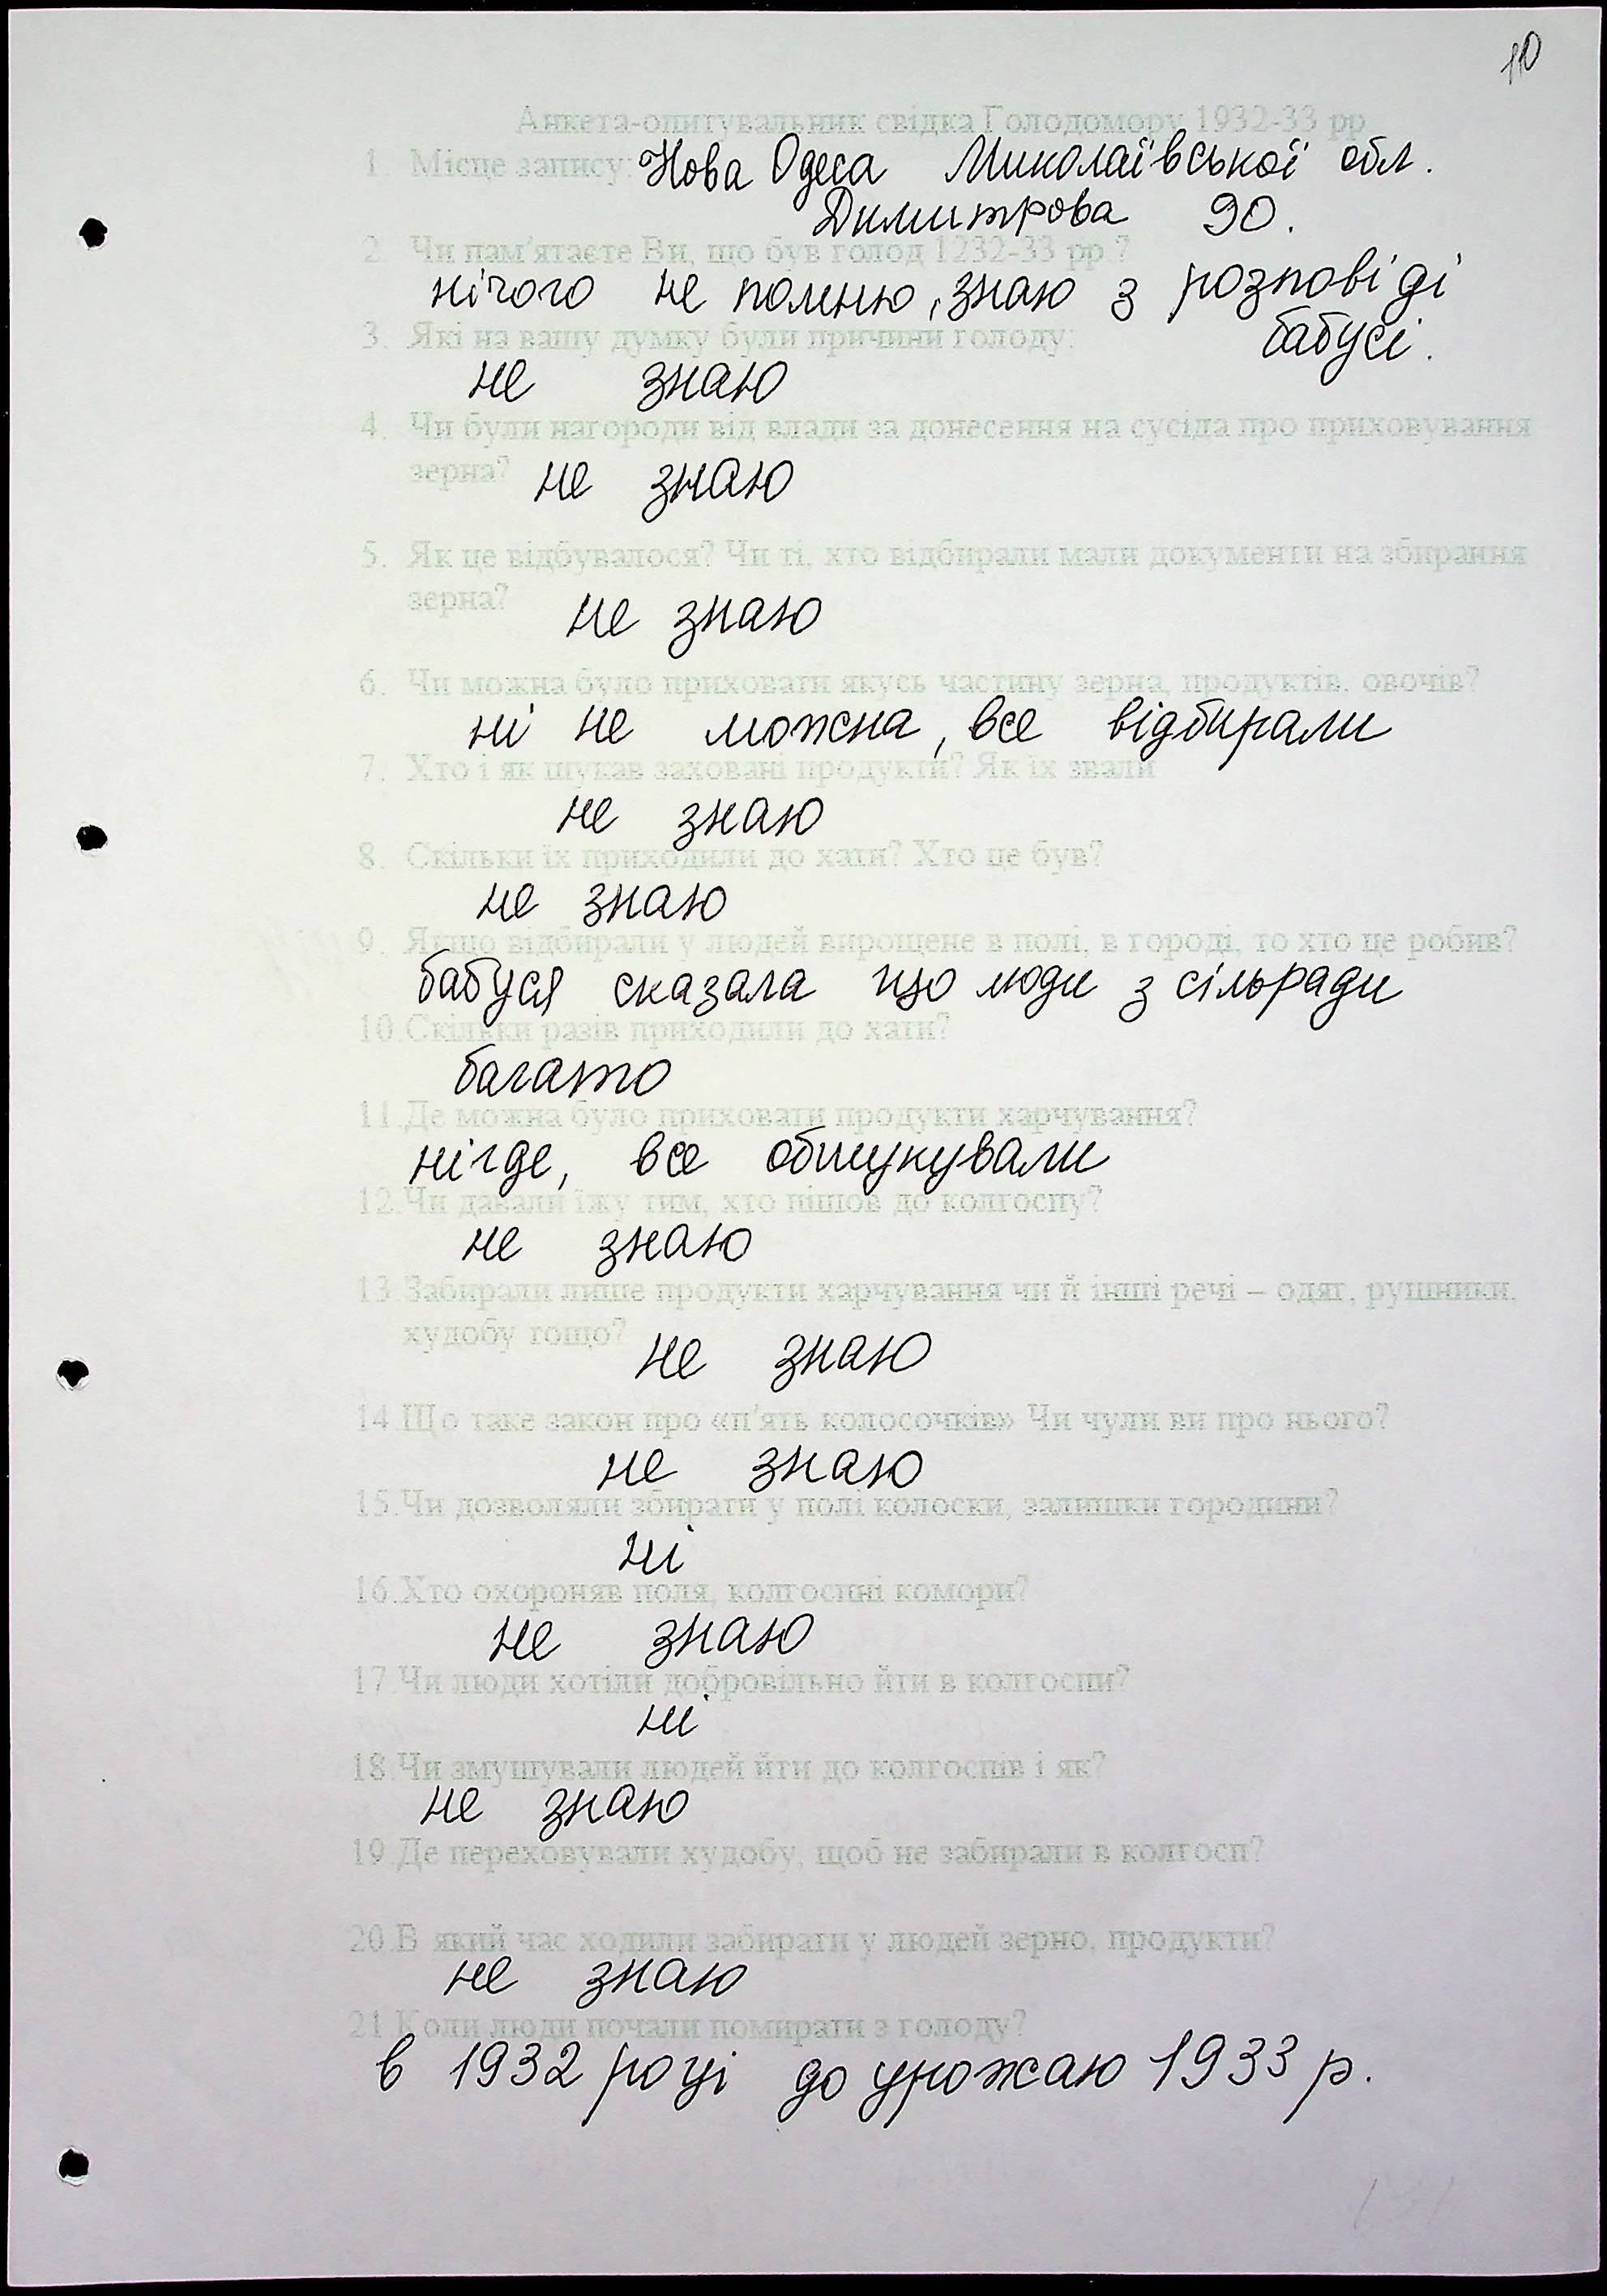 110
Анкета-опитувальник свідка Голодомору 1932-33 рр
1. Місце запису: Нова Одеса Миколаївської обл.
Димитрова 90.
2. Чи пам'ятаєте Ви, що був голод 1232-33 рр.?
нічого не помню, знаю з розповіді
бабусі.
3. Які на вашу думку були причини голоду:
не знаю
4. Чи були нагороди від влади за донесення на сусіда про приховування
зерна? не знаю
5. Як це відбувалося? Чи ті, хто відбирали мали документи на збирання
зерна? не знаю
6. Чи можна було приховати якусь частину зерна, продуктів, овочів?
ні не можна, все відбирали
7. Хто і як шукав заховані продукти? Як їх звали
не знаю
8. Скільки їх приходили до хати? Хто це був?
не знаю
9. Якщо відбирали у людей вирощене в полі, в городі, то хто це робив?
бабуся сказала що люди з сільради
10.Скільки разів приходили до хати?
багато
11.Де можна було приховати продукти харчування?
нігде, все обшукували
12.Чи давали їжу тим, хто пішов до колгоспу?
не знаю
13.Забирали лише продукти харчування чи й інші речі – одяг, рушники,
худобу тощо? не знаю
14.Що таке закон про «п'ять колосочків» Чи чули ви про нього?
не знаю
15.Чи дозволяли збирати у полі колоски, залишки городини?
ні
16.Хто охороняв поля, колгоспні комори?
не знаю
17.Чи люди хотіли добровільно йти в колгоспи?
ні
18.Чи змушували людей йти до колгоспів і як?
не знаю
19.Де переховували худобу, щоб не забирали в колгосп?
20.В який час ходили забирати у людей зерно, продукти?
не знаю
21.Коли люди почали помирати з голоду?
в 1932 році до урожаю 1933 р.